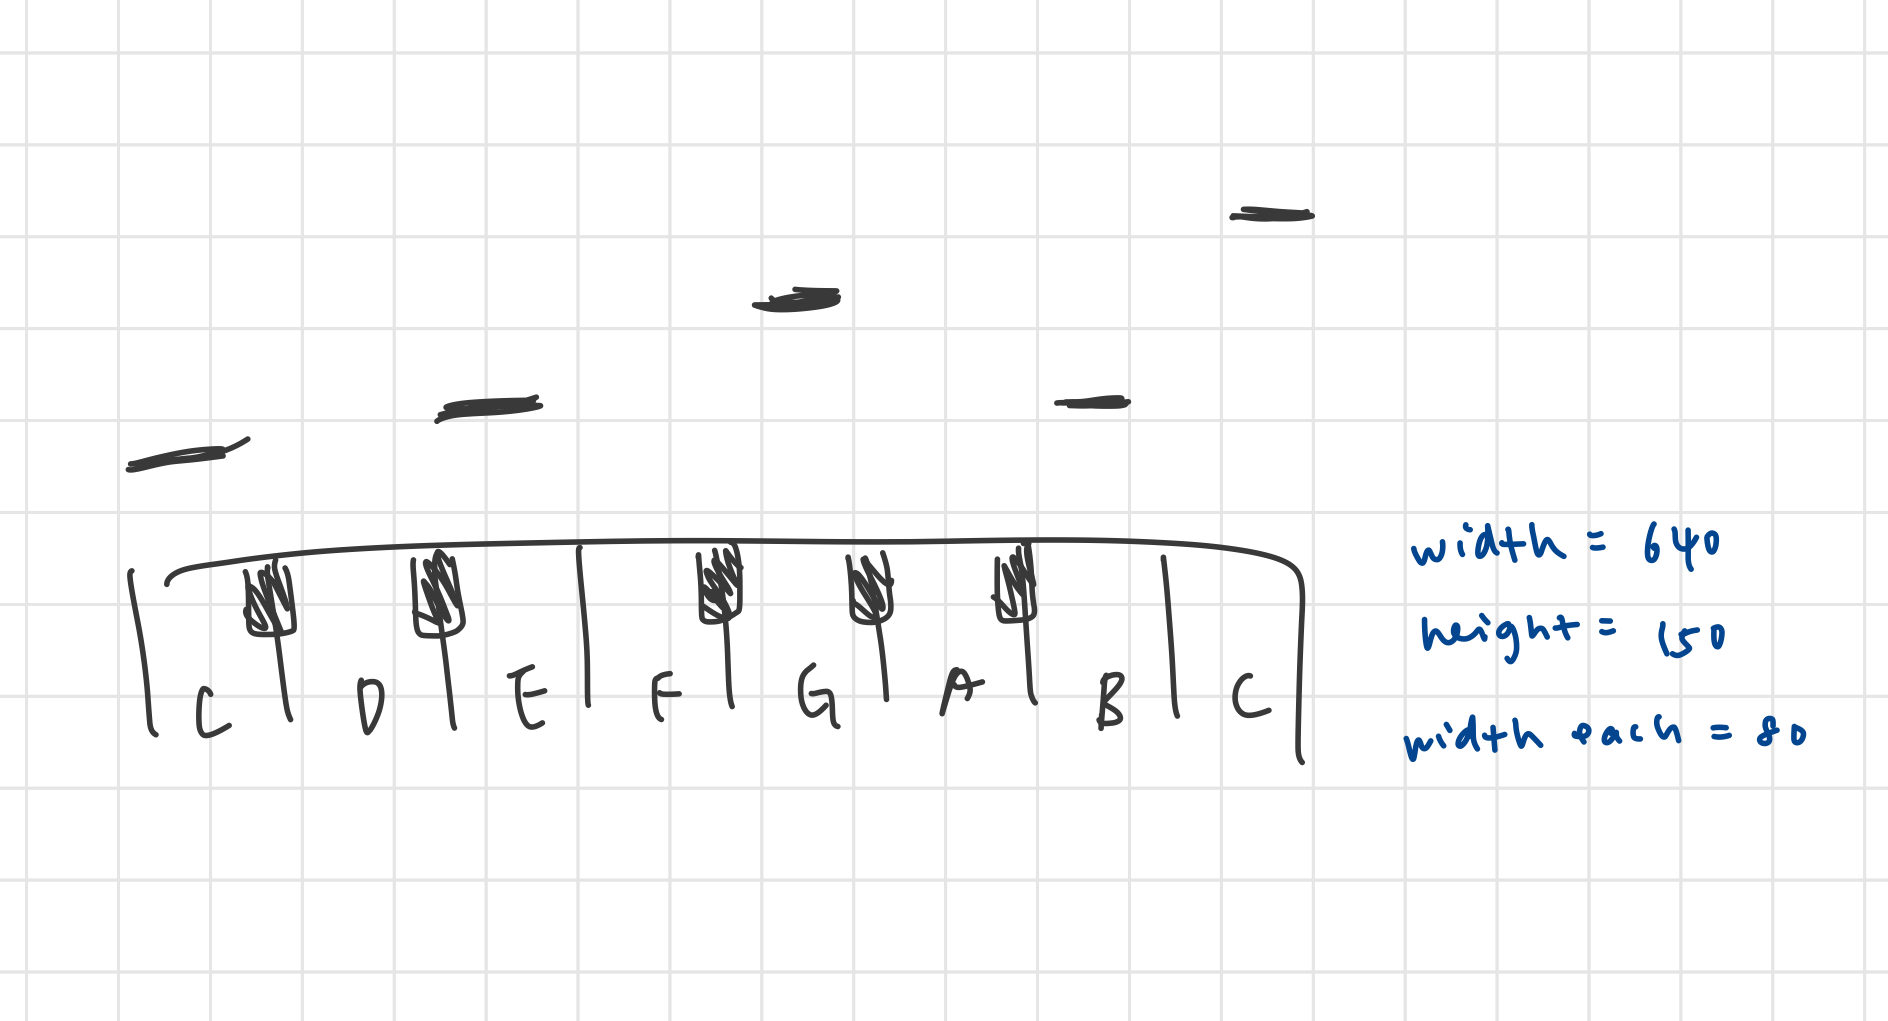 C D E F G A B C
width = 640
height = 150
width each = 80